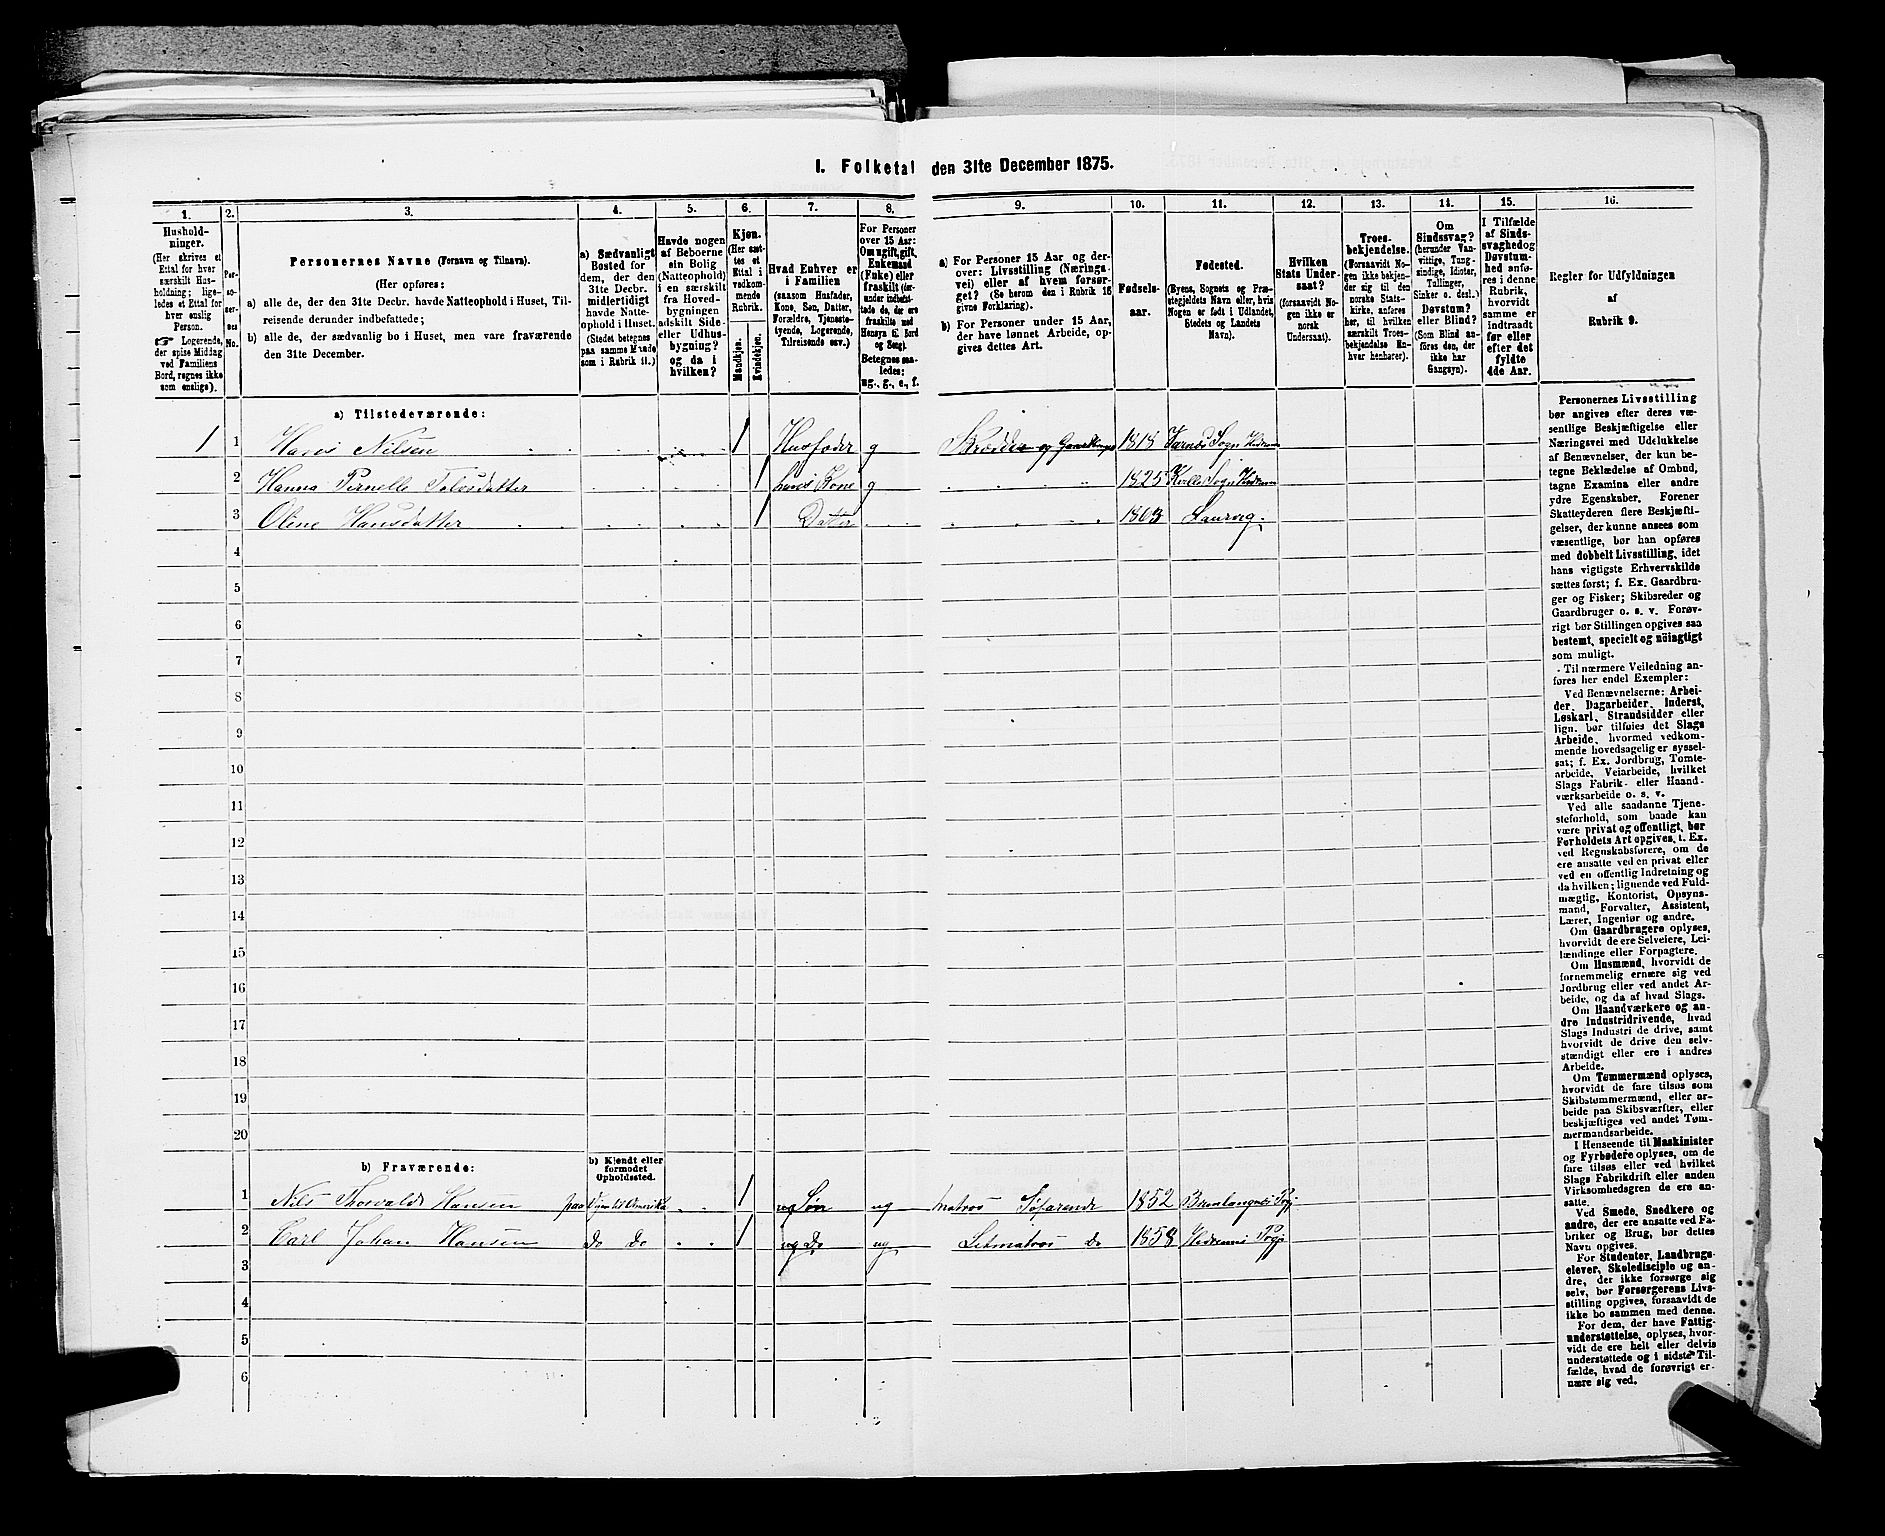 I. Folketal den 31te December 1875.
1. 2. 3. 4. 5. 6. 7. 8. 9. 10. 11. 12. 13. 14. 15. 16.
Hushold-
ninger.
(Her skrives et
Ettal for hver
særskilt Hus-
holdning; lige-
ledes et Ettal for
hver enslig
Person.
☞ Logerende,
der spise Middag
ved Familiens
Bord, regnes ikke
som enslige).
Per-
so-
ner-
nes
No.
Personernes Navne (Fornavn og Tilnavn).
(Her opføres:
a) alle de, der den 31te Decbr. havde Natteophold i Huset, Til-
reisende derunder indbefattede;
b) alle de, der sædvanlig bo i Huset, men vare fraværende
den 31te December.
a) Sædvanligt
Bosted for
dem, der den
31te Decbr.
midlertidigt
havde Natte-
ophold i Huset.
(Stedet betegnes
paa samme Maade
som i Rubrik 11.)
Havde nogen
af Beboerne
sin Bolig
(Natteophold)
i en særskilt
fra Hoved-
bygningen
adskilt Side-
eller Udhus-
bygning?
og da i
hvilken?
Kjøn.
(Her sæt-
tes et
Ettal i
vedkom-
mende
Rubrik.
Mandkjøn.
Kvindekjøn.
Hvad Enhver er
i Familien
(saasom Husfader,
Kone, Søn, Datter,
Forældre, Tjeneste-
tyende, Logerende,
Tilreisende osv.)
For Personer
over 15 Aar:
Om ugift, gift,
Enkemand
(Enke) eller
fraskilt
Betegnes saa-
ledes:
ug., g., e., f.
a) For Personer 15 Aar og der-
over: Livsstilling (Nærings-
vei) eller af hvem forsør-
get? (Se herom den i Rubrik 16
givne Forklaring).
b) For Personer under 15 Aar,
der have lønnet Arbeide, op-
gives dettes Art.
Fødsels-
aar.
Fødested.
(Byens, Sognets og Præ-
stegjeldets Navn eller, hvis
Nogen er født i Udlandet,
Stedets og Landets
Navn).
Hvilken
Stats Under-
saat?
(forsaavidt No-
gen ikke er
norsk
Undersaat).
Troes-
bekjendelse.
(Forsaavidt No-
gen ikke bekjen-
der sig til den
norske Stats-
kirke, anføres
her, til hvilken
særskilt Troes-
bekjendelse En-
hver henhører).
Om
Sindssvag?
(herunder Van-
vittige, Tung-
sindige, Idioter,
Tullinger,
Sinker o. desl.)
Døvstum?
eller Blind?
(Som Blind an-
føres den, der
ikke har
Gangsyn).
I Tilfælde
af Sinds-
svaghed og
Døvstum-
hed anfø-
res i denne
Rubrik,
hvorvidt
samme er
indtraadt
før eller
efter det
fyldte
4de Aar.
Regler for Udfyldningen
af
Rubrik 9.
a) Tilstedeværende:
1 1 Hans Nilsen 1 Husfader g Skrædder og 1818 Sogn
2 Hanna Pernelle 1 hans Kone g 1825 Sogn
3 Oline Hansdatter 1 Datter 1863 Laurvig
4
5
6
7
8
9
10
11
12
13
14
15
16
17
18
19
20
b) Fraværende:
b) Kjendt eller
formodet
Opholdssted.
1 Nils Thorvald Hansen paa til Amerika 1 Søn ug Matros Søfarende 1852
2 Carl Johan Hansen Do Do 1 ug Do ug Letmatros Do 1858
3
4
5
6
Personernes Livsstilling
bør angives efter deres væ-
sentlige Beskjæftigelse eller
Næringsvei med Udelukkelse
af Benævnelser, der kun be-
tegne Beklædelse af Ombud,
tagne Examina eller andre
ydre Egenskaber. Forener
Skatteyderen flere Beskjæfti-
gelser, der kunne ansees som
væsentlige, bør han opføres
med dobbelt Livsstilling, idet
hans vigtigste Erhvervskilde
sættes først; f. Ex. Gaardbru-
ger og Fisker; Skibsreder og
Gaardbruger o. s. v. Forøv-
rigt bør Stillingen opgives saa
bestemt, specielt og nøiagtigt
som muligt.
Til nærmere Veiledning an-
føres her endel Exempler:
Ved Benævnelserne: Arbei-
der, Dagarbeider, Inderst,
Løskarl, Strandsidder eller
lign. bør tilføies det Slags
Arbeide, hvormed vedkom-
mende hovedsagelig er syssel-
sat; f. Ex. Jordbrug, Tomte-
arbeide, Veiarbeide, hvilket
Slags Fabrik- eller Haand-
værksarbeide o. s. v.
Ved alle saadanne Tjene-
steforhold, som baade kan
være privat og offentligt, bør
Forholdets Art opgives, t. Ex.
ved Regnskabsførere, om de
ere ansatte ved en privat eller
ved en offentlig Indretning og
da hvilken; lignende ved Fuld-
mægtig, Kontorist, Opsyns-
mand, Forvalter, Assistent,
Lærer, Ingeniør og andre.
Om Gaardbrugere oplyses,
hvorvidt de ere Selveiere, Lei-
lændinge eller Forpagtere.
Om Husmænd, hvorvidt de
fornemmelig ernære sig ved
Jordbrug eller ved andet Ar-
beide, og da af hvad Slags.
Om Haandværkere og an-
dre Industridrivende, hvad
Slags Industri de drive, samt
hvorvidt de drive den selv-
stændigt eller ere i andres
Arbeide.
Om Tømmermænd oplyses,
hvorvidt de fare tilsøs som
Skibstømmermænd, eller ar-
beide paa Skibsværfter, eller
beskjæftiges ved andet Tøm-
mermandsarbeide.
I Henseende til Maskinister
og Fyrbødere oplyses, om de
fare tilsøs eller ved hvilket
Slags Fabrikdrift eller anden
Virksomhedsgren de ere an-
satte.
Ved Smede, Snedkere og
andre, der ere ansatte ved Fa-
briker og Brug, bør dettes
Navn opgives.
For Studenter, Landbrugs-
elever, Skoledisciple og an-
dre, der ikke forsørge sig
selv, bør Forsørgerens Livs-
stilling opgives, forsaavidt de
ikke bo sammen med denne.
For dem, der have Fattig-
understøttelse, oplyses, hvor-
vidt de ere helt eller delvis
understøttede og i sidste Til-
fælde, hvad de forøvrigt er-
nære sig ved.